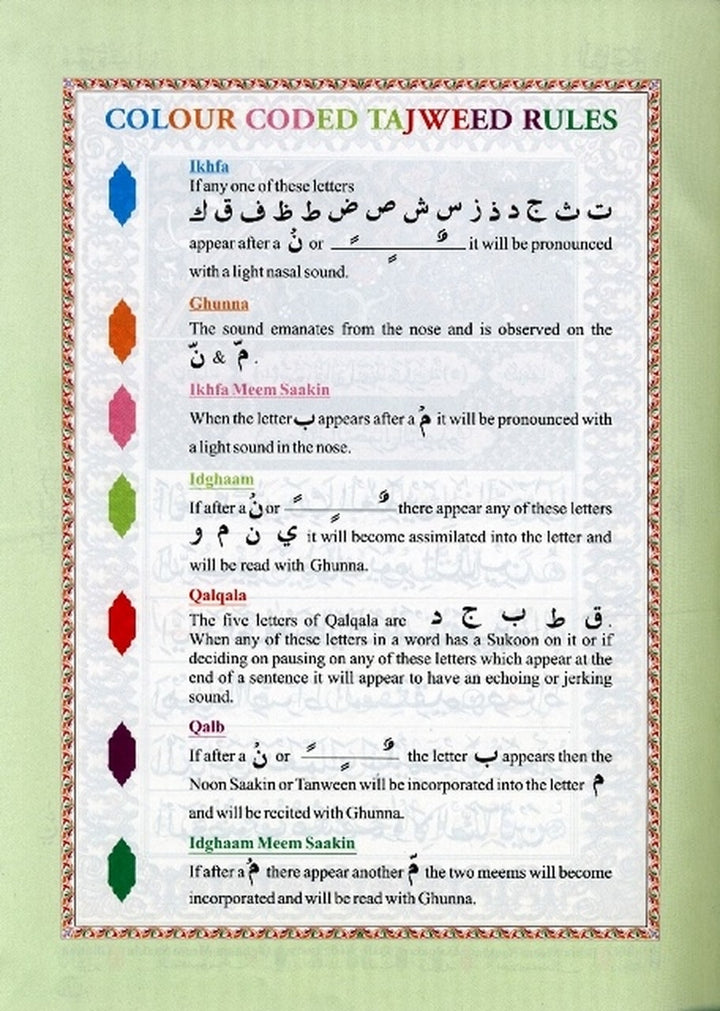 COLOUR CODED TAJWEED RULES
Ikhfa
If any one of these letters
ت ث ج د ذ ز س ش ص ض ط ظ ف ق ك
appear after a نْ or ً ٍ ٌ it will be pronounced
with a light nasal sound.
Ghunna
The sound emanates from the nose and is observed on the
نّ & مّ .
Ikhfa Meem Saakin
When the letter ب appears after a مْ it will be pronounced with
a light sound in the nose.
Idghaam
If after a نْ or ً ٍ ٌ there appear any of these letters
ي ن م و it will become assimilated into the letter and
will be read with Ghunna.
Qalqala
The five letters of Qalqala are ق ط ب ج د .
When any of these letters in a word has a Sukoon on it or if
deciding on pausing on any of these letters which appear at the
end of a sentence it will appear to have an echoing or jerking
sound.
Qalb
If after a نْ or ً ٍ ٌ the letter ب appears then the
Noon Saakin or Tanween will be incorporated into the letter م
and will be recited with Ghunna.
Idghaam Meem Saakin
If after a مْ there appear another مّ the two meems will become
incorporated and will be read with Ghunna.